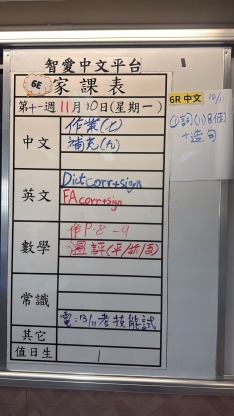 智愛中文平台
6E 家課表
第十一週11月10日(星期一)
中文 作業(七)
補充(九)
英文 Dict corr+sign
FA corr+sign
數學 作P.8-9
常識
電:13/11考技能試
其它
值日生 1
6R 中文
+造句